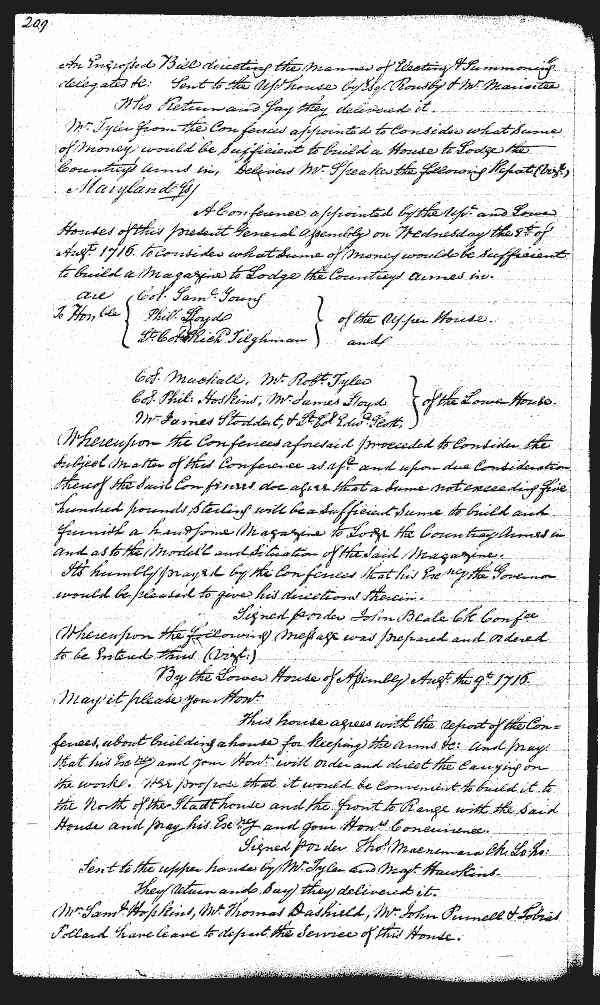 209
An Engrossed Bill directing the manner of Electing & Summoning
delegates &c: Sent to the Upr house by Rousby & Mr Mariartee
Who Return and Say they delivered it.
Mr Tyler from the Conferees appointed to Consider what Sume
of Money would be Sufficient to build a House to Lodge the
Countrys Arms in, delivers Mr Speaker the following Report (Vizt.)
Maryland Ss
A Conference appointed by the Upr and Lower
Houses of this present General Assembly on Wednesday the 8th of
Augt 1716 to consider what Sume of Money would be sufficient
to build a Magazine to Lodge the Countrys armes in.
are
To Honble { Col. Saml Young
Phill Lloyd
Lt Col Richd Tilghman } of the Upper House.
and
Col. Mackall, Mr Robt Tyler
Col. Phil. Hoskins, Mr James Lloyd
Mr James Stoddert, & Lt Col Edwd Scott. } of the Lower House.
Whereupon the Conferees aforesaid proceeded to Consider the
Subject Matter of this Conference as afd and upon due Consideration
thereof the Said Conferrees doe agree that a Sume not exceeding five
hundred pounds Sterling will be a Sufficient Sume to build and
furnish a handsome Magazine to Lodge the Countrey Armes in
and as to the Modell and Situation of the Said Magazine.
It's humbly prayed by the Conferees that his Excncy the Governor
would be pleased to give his directions therein.
Signed p order John Beale Ck Confee
Whereupon the following Message was prepared and ordered
to be Entered thus (Vizt.)
By the Lower House of Assembly Augt the 9th 1716
May it please your Honrs
This house agrees with the report of the Con=
ferees, about building a house for keeping the arms &c: and pray
that his Excncy and your Honrs will order and direct the Carrying on
the worke. Wee propose that it would be Convenient to build it to
the North of the Stadt house and the front to Range with the Said
House and pray his Excncy and your Honrs Concurrence.
Signed p order Thos Macnemara Ck. Lo. Ho:
Sent to the upper house by Mr Tyler and Majr Hawkins.
They return and Say they delivered it.
Mr Saml Hopkins, Mr Thomas Dashield, Mr John Purnell & Tobias
Pollard have leave to depart the Service of this House.